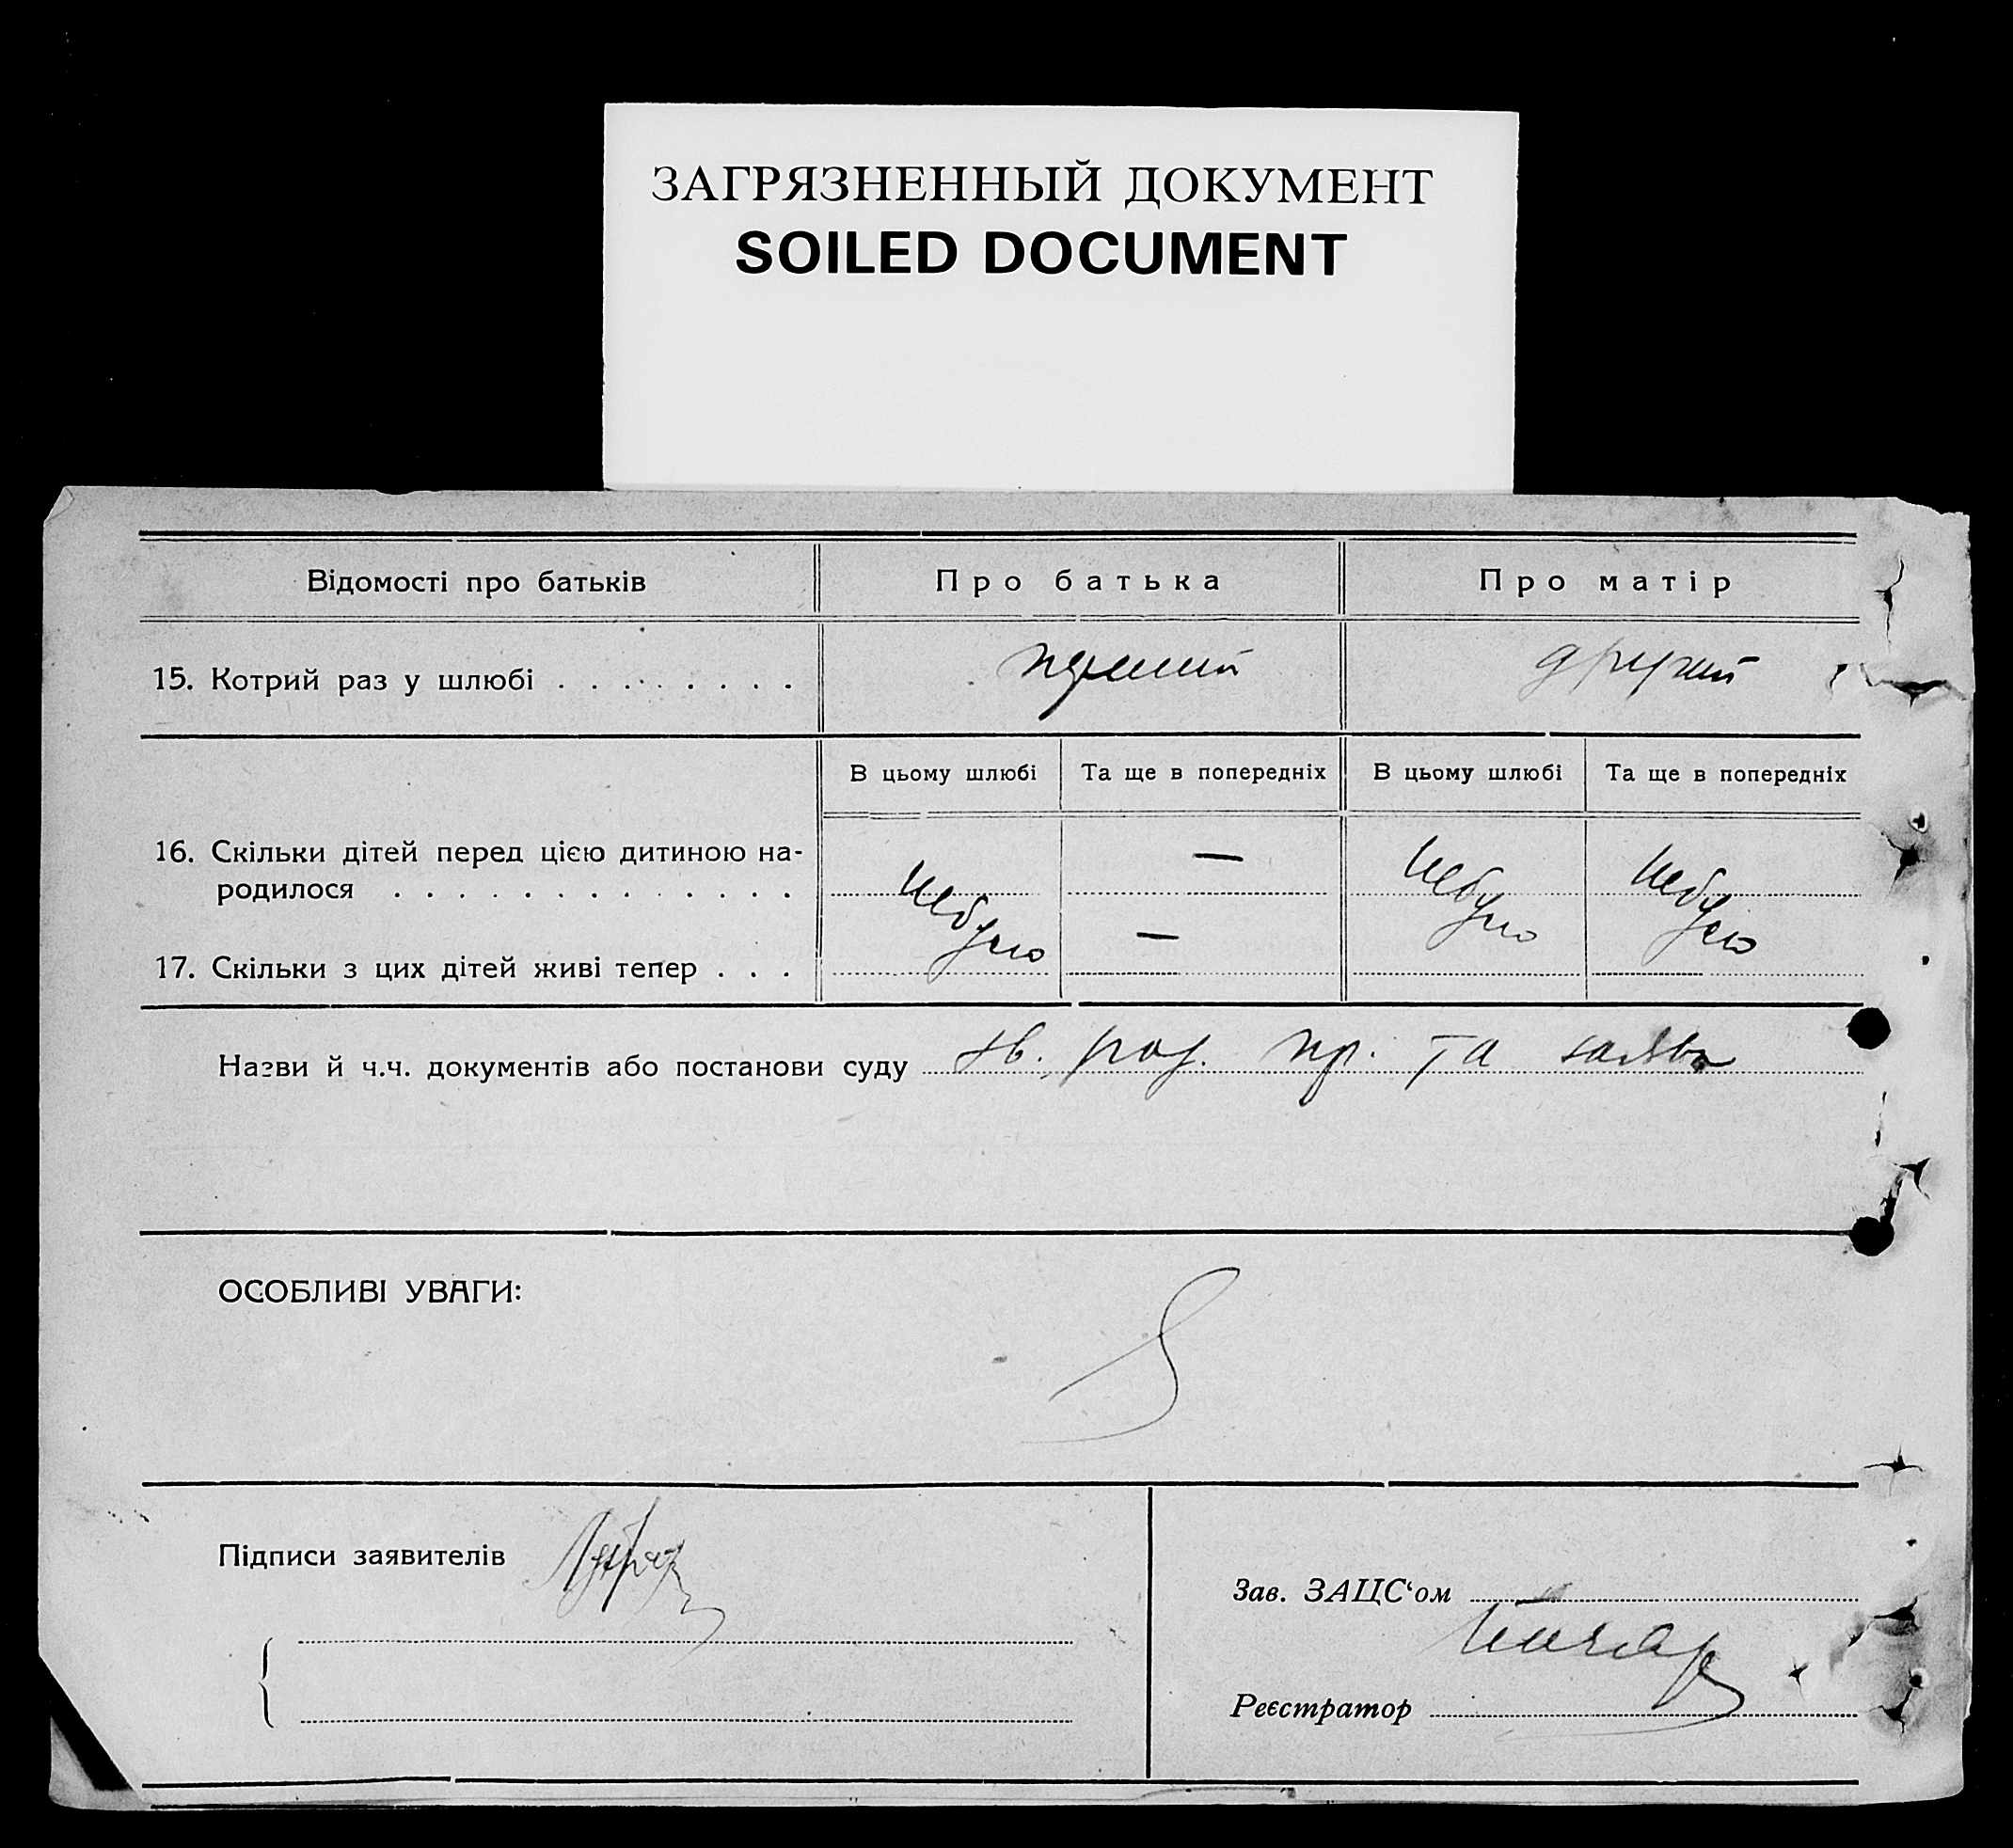 ЗАГРЯЗНЕННЫЙ ДОКУМЕНТ
SOILED DOCUMENT
Відомості про батьків Про батька Про матір
15. Котрий раз у шлюбі . . . . . . . . перший другий
В цьому шлюбі Та ще в попередніх В цьому шлюбі Та ще в попередніх
16. Скільки дітей перед цією дитиною на-
родилося . . . . . . . . . . . . . небуло — небуло небуло
17. Скільки з цих дітей живі тепер . . . —
Назви й ч.ч. документів або постанови суду зв. род. пр. та заява
ОСОБЛИВІ УВАГИ:
Підписи заявителів
Зав. ЗАЦС‘ом
Реєстратор